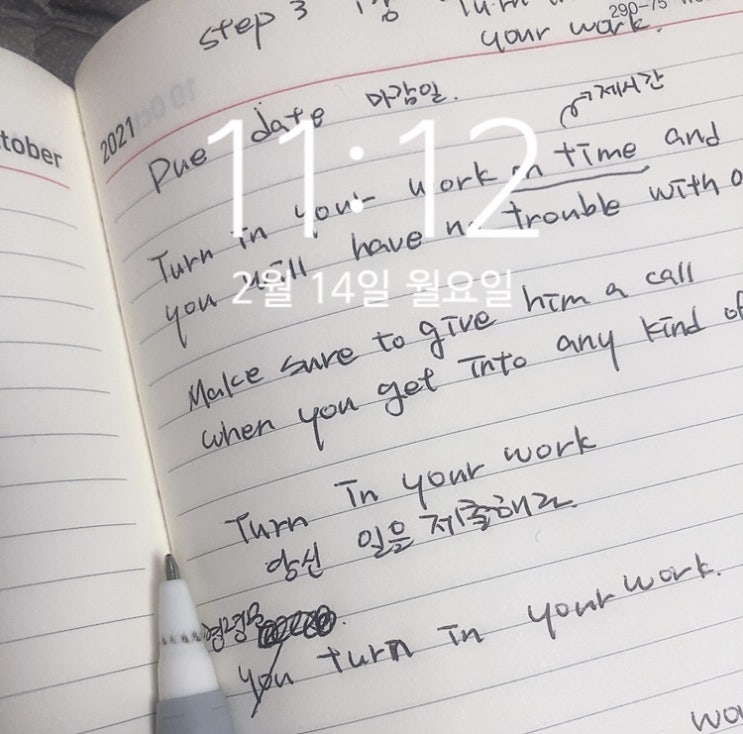 step 3
your work.
290-75
tober
2021
Due date 마감일.
제시간
11:12
Turn in your work on time and
you will have no trouble with
2월 14일 월요일
Make sure to give him a call
when you get into any kind of
Turn in your work
당신 일을 제출해라.
명령문
you turn in your work.